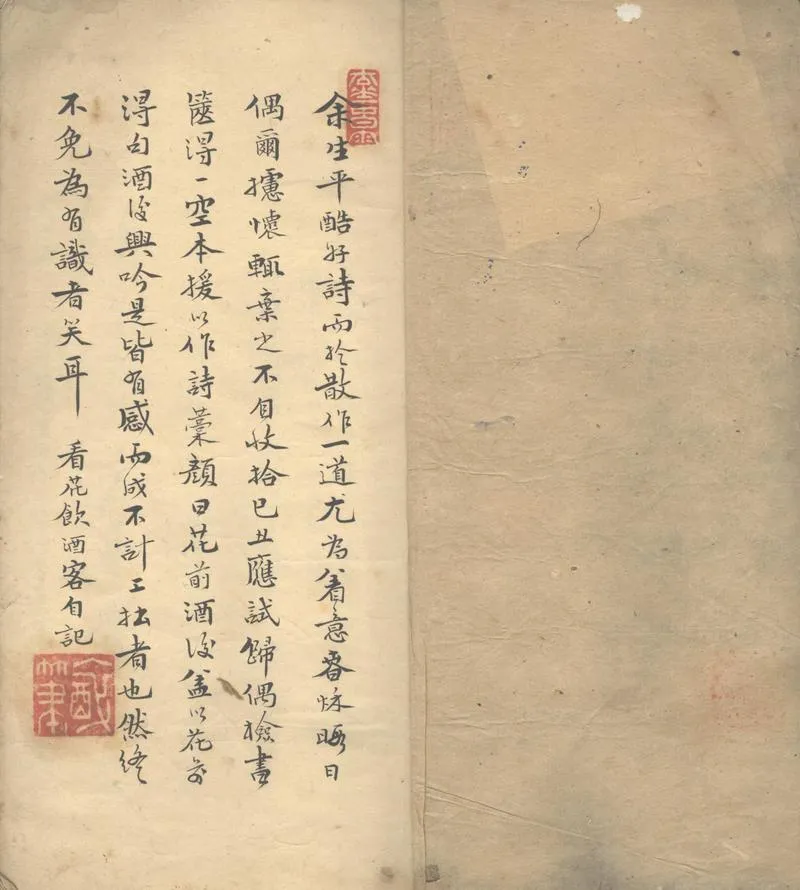 余生平酷好詩而於散作一道尤為着意春秋暇日
偶爾攄懷輒棄之不自收拾己丑應試歸偶檢書
篋得一空本援以作詩藁顏曰花前酒後盖以花前
得句酒後興吟是皆有感而成不計工拙者也然終
不免為有識者笑耳 看花飲酒客自記